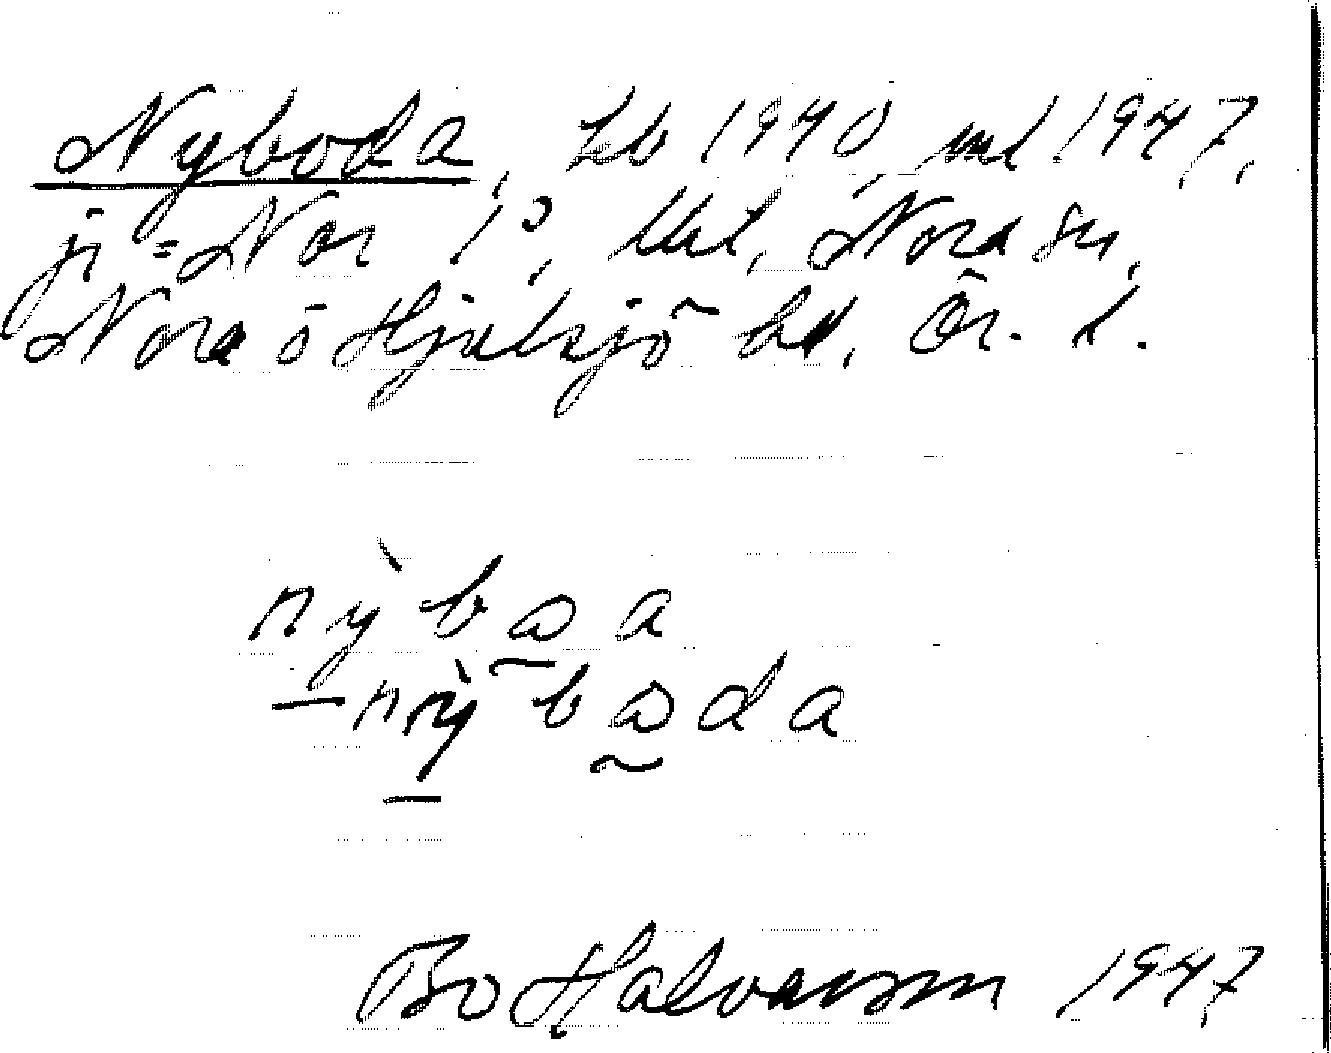 Nyboda, Lb 1940, ml 1947,
jr = Nor 1⁹, Utl, Nora sn,
Nora o Hjulsjö hd, Ör. l.
nỳb a
– nỳb da
Bo Halvarson 1947